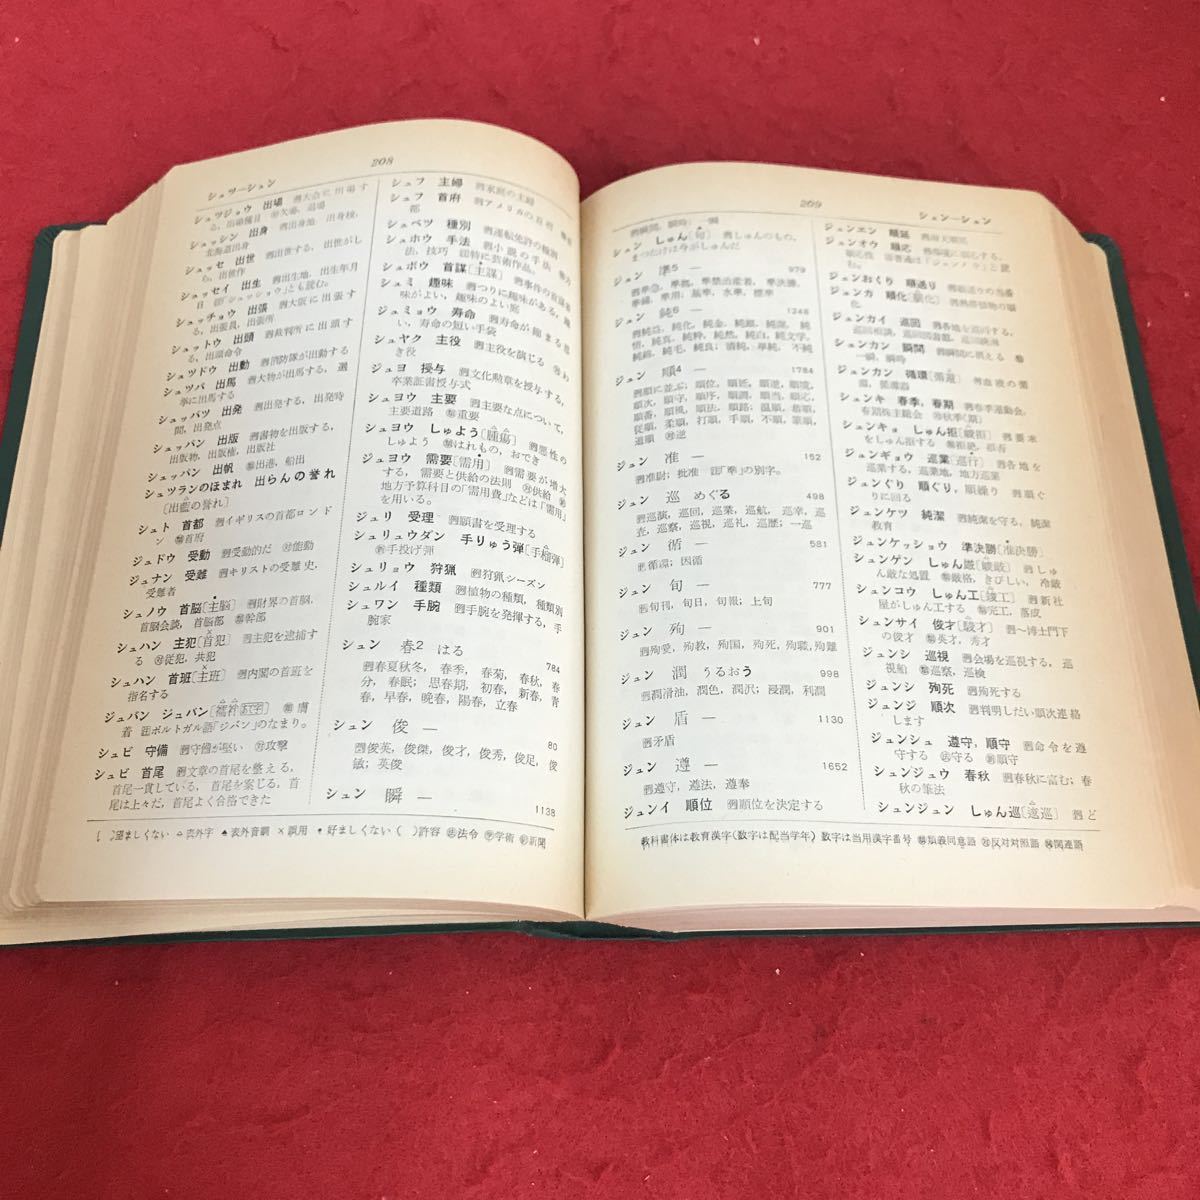 208
シュツーシュン
シュツジョウ 出場 例大会に出場す
る，出場種目 対欠場，退場
シュッシン 出身 例出身地，出身校，
北海道出身
シュッセ 出世 例出世する，出世がし
ら，出世作
シュッセイ 出生 例出生地，出生年月
日 注「シュッショウ」とも読む。
シュッチョウ 出張 例大阪に出張す
る，出張員，出張所
シュットウ 出頭 例裁判所に出頭す
る，出頭命令
シュツドウ 出動 例消防隊が出動する
シュツバ 出馬 例大物が出馬する，選
挙に出馬する
シュッパツ 出発 例出発する，出発時
間，出発点
シュッパン 出版 例書物を出版する，
出版物，出版権，出版社
シュッパン 出帆 類出港，船出
シュツランのほまれ 出らんの誉れ
［出藍の誉れ］
シュト 首都 例イギリスの首都ロンド
ン 類首府
ジュドウ 受動 例受動的だ 対能動
ジュナン 受難 例キリストの受難史，
受難者
シュノウ 首脳［主脳］ 例財界の首脳，
首脳会談，首脳部 類幹部
シュハン 主犯［首犯］ 例主犯を逮捕す
る 対従犯，共犯
シュハン 首班［主班］ 例内閣の首班を
指名する
ジュバン ジュバン［襦袢］ 類膚
着 注ポルトガル語「ジバン」のなまり。
シュビ 守備 例守備が堅い 対攻撃
シュビ 首尾 例文章の首尾を整える，
首尾一貫している，首尾を案じる，首
尾は上々だ，首尾よく合格できた
シュフ 主婦 例家庭の主婦
シュフ 首府 例アメリカの首府
都
シュベツ 種別 例運転免許の種別
シュホウ 手法 例小説の手法
法，技巧 注特に芸術作品。
シュボウ 首謀［主謀］ 例事件の首謀者
シュミ 趣味 例つりに趣味がある，趣
味がよい，趣味のよい庭
ジュミョウ 寿命 例寿命が縮まる思
い，寿命の短い手袋
シュヤク 主役 例主役を演じる 対わ
き役
ジュヨ 授与 例文化勲章を授与する，
卒業証書授与式
シュヨウ 主要 例主要な点について，
主要道路 類重要
シュヨウ しゅよう［腫瘍］ 例悪性の
しゅよう 類はれもの，おでき
ジュヨウ 需要［需用］ 例需要が増大
する，需要と供給の法則 対供給
地方予算科目の「需用費」などは「需用」
を用いる。
ジュリ 受理 例願書を受理する
シュリュウダン 手りゅう弾［手榴弾］
新手投げ弾
シュリョウ 狩猟 例狩猟シーズン
シュルイ 種類 例植物の種類，種類別
シュワン 手腕 例手腕を発揮する，手
腕家
シュン 春2 はる
784
例春夏秋冬，春季，春菊，春秋，春
分，春眠；思春期，初春，新春，青
春，早春，晩春，陽春，立春
シュン 俊 ―
80
例俊英，俊傑，俊才，俊秀，俊足，俊
敏；英俊
シュン 瞬 ―
1138
［ ］望ましくない △表外字 ▲表外音訓 ×誤用 •好ましくない（ ）許容 法法令 学学術 新新聞
209
シュンーシュン
例瞬間，瞬時；一瞬
シュン しゅん［旬］ 例しゅんのもの，
まつたけは今がしゅんだ
ジュン 準5 ―
979
例準急，準拠，準禁治産者，準決勝，
準備，準用；基準，水準，標準
ジュン 純6 ―
1248
例純益，純化，純金，純銀，純潔，純
情，純真，純粋，純然，純白，純文学，
純綿，純毛，純良；清純，単純，不純
ジュン 順4 ―
1784
例順に並ぶ，順位，順延，順逆，順境，
順次，順守，順序，順調，順当，順応，
順番，順風，順法，順路；温順，恭順，
従順，柔順，打順，手順，不順，筆順，
道順 対逆
ジュン 准 ―
152
例准尉；批准 注「準」の別字。
ジュン 巡 めぐる
498
例巡演，巡回，巡業，巡航，巡幸，巡
査，巡察，巡視，巡礼，巡歴；一巡
ジュン 循 ―
581
例循環；因循
ジュン 旬 ―
777
例旬刊，旬日，旬報；上旬
ジュン 殉 ―
901
例殉愛，殉教，殉国，殉死，殉職，殉難
ジュン 潤 うるおう
998
例潤滑油，潤色，潤沢；浸潤，利潤
ジュン 盾 ―
1130
例矛盾
ジュン 遵 ―
1652
例遵守，遵法，遵奉
ジュンイ 順位 例順位を決定する
ジュンエン 順延 例雨天順延
ジュンオウ 順応 例環境に順応する，
順応性 注普通は「ジュンノウ」と読
む。
ジュンおくり 順送り 例順送りの当番
ジュンカ 順化［馴化］ 例熱帯植物の順
化
ジュンカイ 巡回 例各地を巡回する，
巡回相談，巡回図書館，巡回映画
シュンカン 瞬間 例瞬間に消える 類
一瞬，瞬時
ジュンカン 循環［循還］ 例血液の循
環，循環器
シュンキ 春季，春期 例春季運動会，
春期株主総会 対秋季（期）
シュンキョ しゅん拒［峻拒］ 例要求
をしゅん拒する 類拒絶，拒否
ジュンギョウ 巡業［巡行］ 例各地を
巡業する，巡業地，地方巡業
ジュンぐり 順ぐり，順繰り 例順ぐ
りに回る
ジュンケツ 純潔 例純潔を守る，純潔
教育
ジュンケッショウ 準決勝［准決勝］
シュンゲン しゅん厳［峻厳］ 例しゅ
ん厳な処置 類厳格，きびしい，冷厳
シュンコウ しゅん工［竣工］ 例新社
屋がしゅん工する 類完工，落成
シュンサイ 俊才［駿才］ 例～博士門下
の俊才 類英才，秀才
ジュンシ 巡視 例会場を巡視する，巡
視船 類巡察，巡検
ジュンシ 殉死 例殉死する
ジュンジ 順次 例判明しだい順次連絡
します
ジュンシュ 遵守，順守 例命令を遵
守する 法守る 新順守
シュンジュウ 春秋 例春秋に富む；春
秋の筆法
シュンジュン しゅん巡［逡巡］ 例ど
教科書体は教育漢字（数字は配当学年）数字は当用漢字番号 類類義同意語 対反対対照語 関関連語